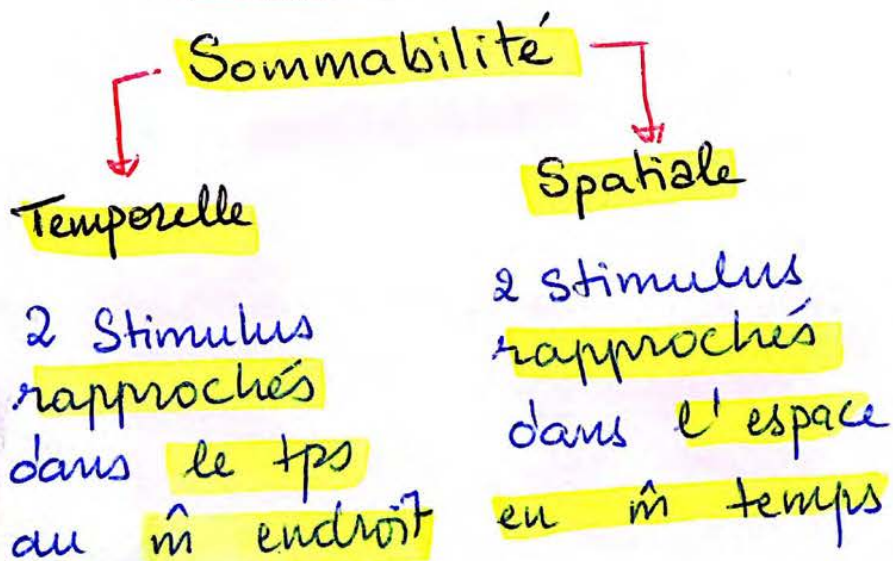 Sommabilité
Temporelle
2 Stimulus
rapprochés
dans le tps
au m̂ endroit
Spatiale
2 stimulus
rapprochés
dans l'espace
en m̂ temps